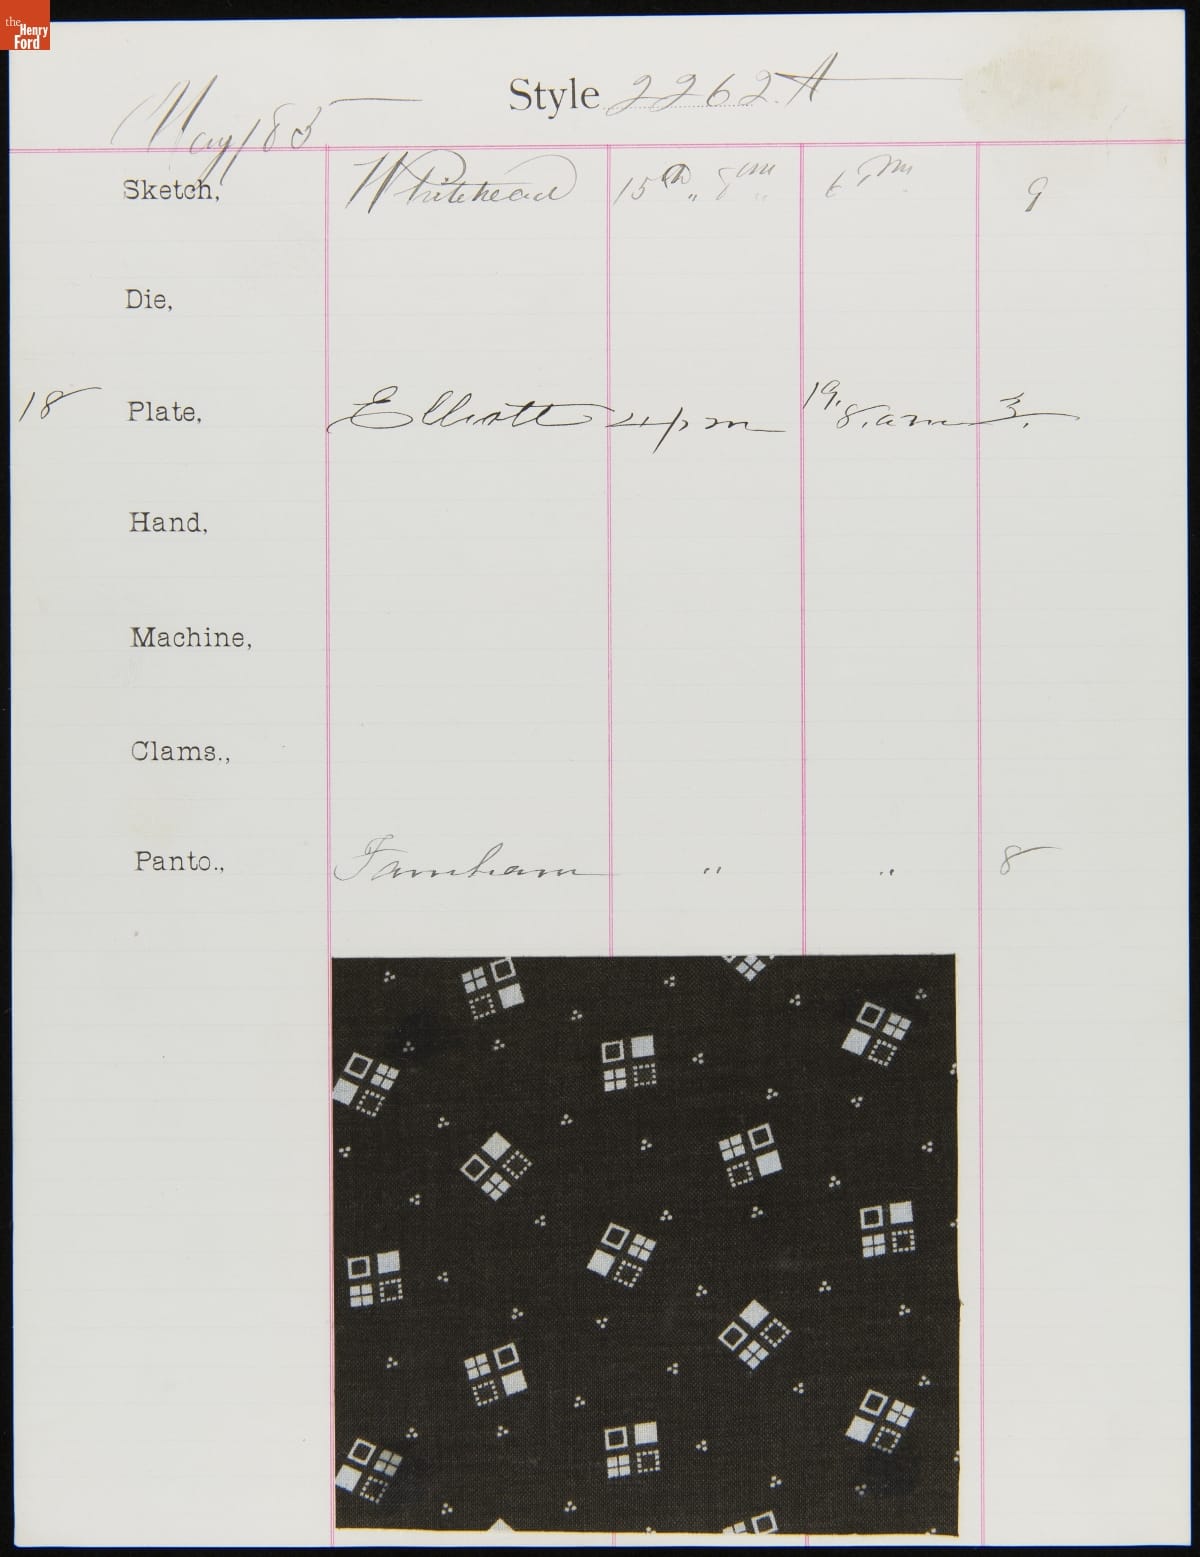 the
Henry
Ford
Style 2262 A
May 185
Sketch, Whitehead 15th " 8 am " 6 Pm 9
Die,
18 Plate, Elliott 4 pm 19. 8. am 3.
Hand,
Machine,
Clams.,
Panto., Farnham " " 8